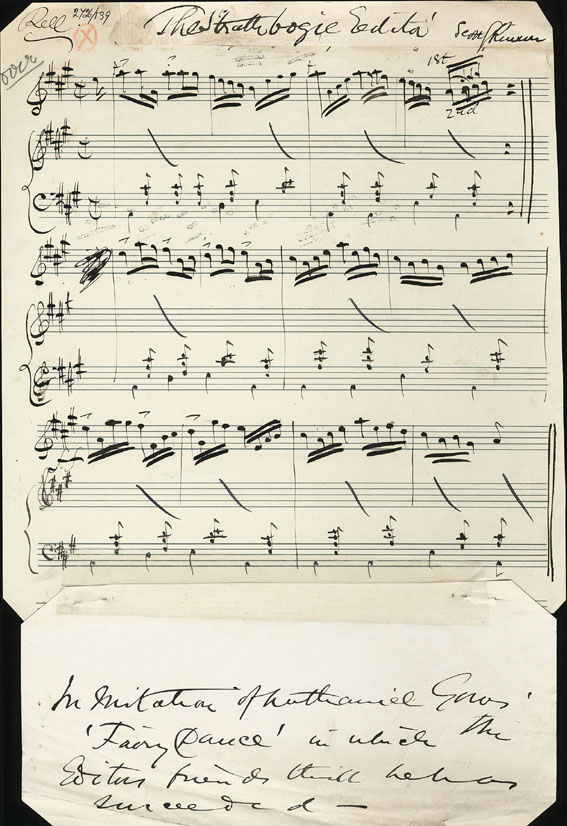 Reel
The Strathbogie Editor
Scott Skinner
over
1st
2nd
In Imitation of Nathaniel Gows'
'Fairy Dance' in which the
Editors friends think he has
succeeded —